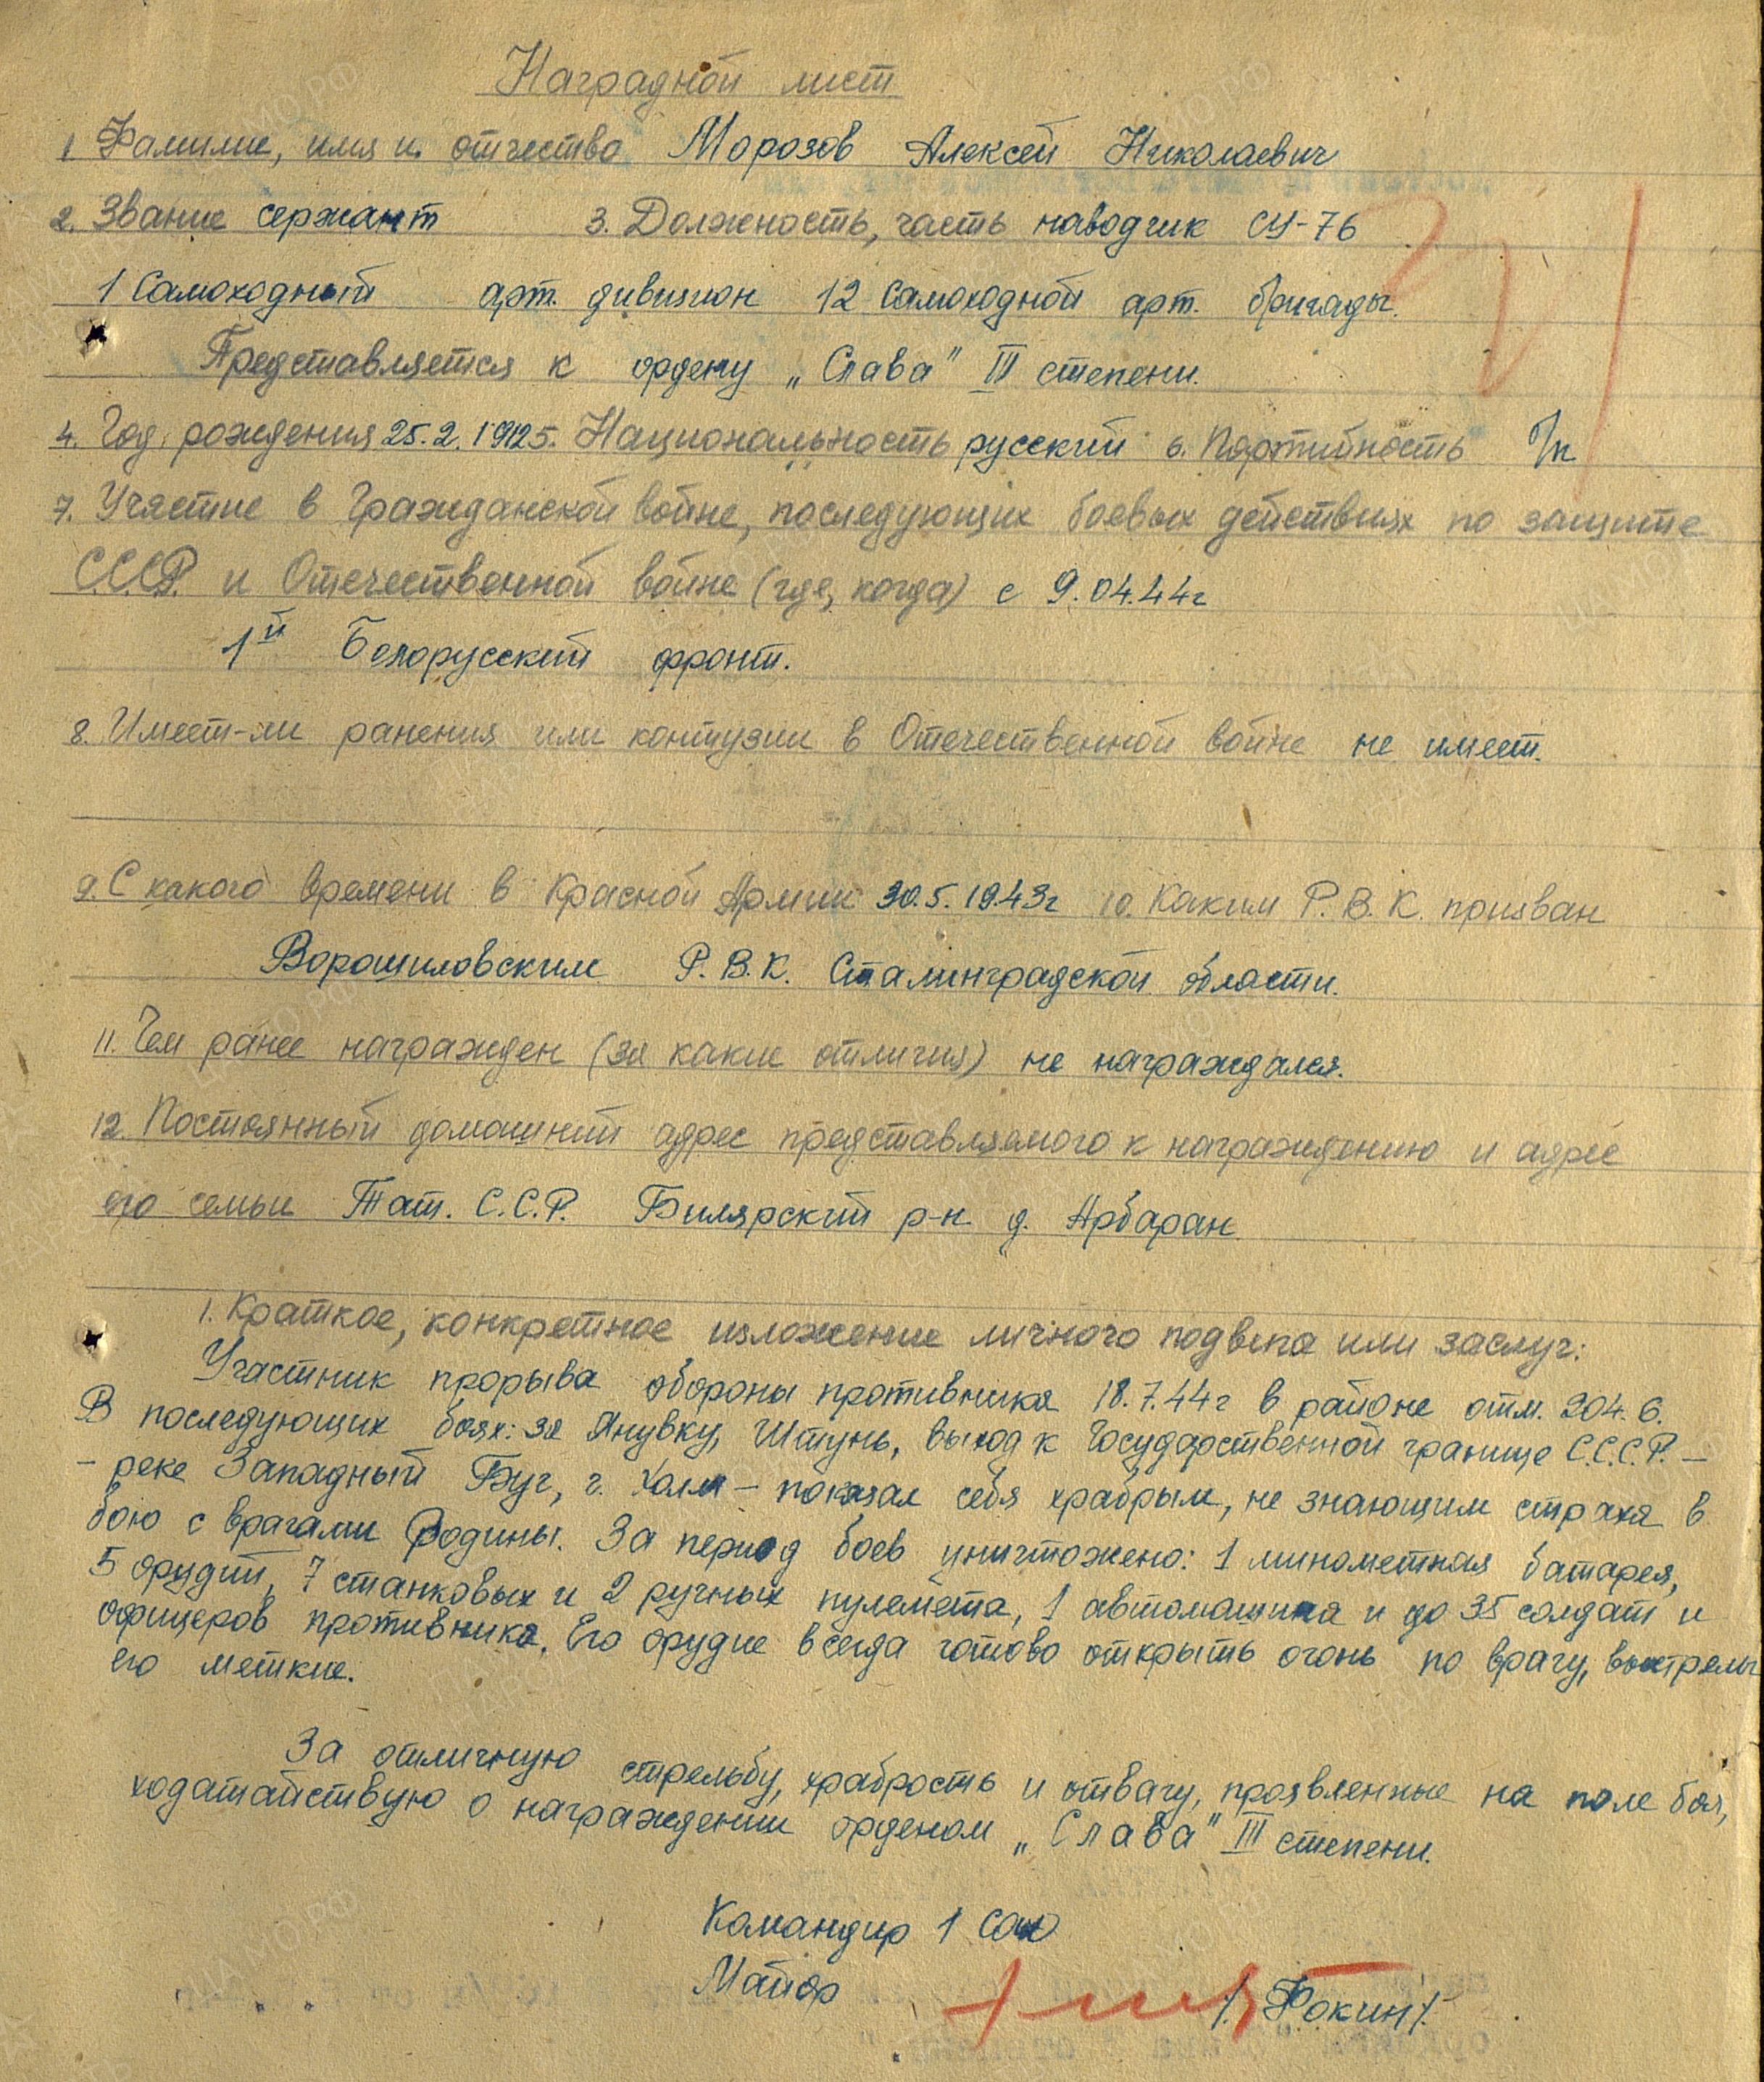 Наградной лист
1 Фамилие, имя и отчество Морозов Алексей Николаевич
2. Звание сержант 3. Должность, часть наводчик СУ-76
1 Самоходный арт. дивизион 12 Самоходной арт. бригады.
Представляется к ордену „Слава" III степени.
4. Год рождения 25.2.1925. Национальность русский 6. Партийность б/п
7. Участие в Гражданской войне, последующих боевых действиях по защите
С.С.С.Р. и Отечественной войне (где, когда) с 9.04.44г
1й Белорусский фронт.
8. Имеет-ли ранения или контузии в Отечественной войне не имеет.
9. С какого времени в Красной Армии 30.5.1943г 10. Каким Р.В.К. призван
Ворошиловским Р.В.К. Сталинградской области.
11. Чем ранее награжден (за какие отличия) не награждался.
12. Постоянный домашний адрес представляемого к награждению и адрес
его семьи Тат. С.С.Р. Билярский р-н д. Арбаран
1. Краткое, конкретное изложение личного подвига или заслуг:
Участник прорыва обороны противника 18.7.44г в районе отм. 204.6.
В последующих боях: за Янувку, Штунь, выход к Государственной границе С.С.С.Р. –
– реке Западный Буг, г. Холм – показал себя храбрым, не знающим страха в
бою с врагами Родины. За период боев уничтожено: 1 минометная батарея,
5 орудий, 7 станковых и 2 ручных пулемета, 1 автомашина и до 35 солдат и
офицеров противника. Его орудие всегда готово открыть огонь по врагу, выстрелы
его меткие.
За отличную стрельбу, храбрость и отвагу, проявленные на поле боя,
ходатайствую о награждении орденом „Слава" III степени.
Командир 1 сад
Майор /. Фокин/.